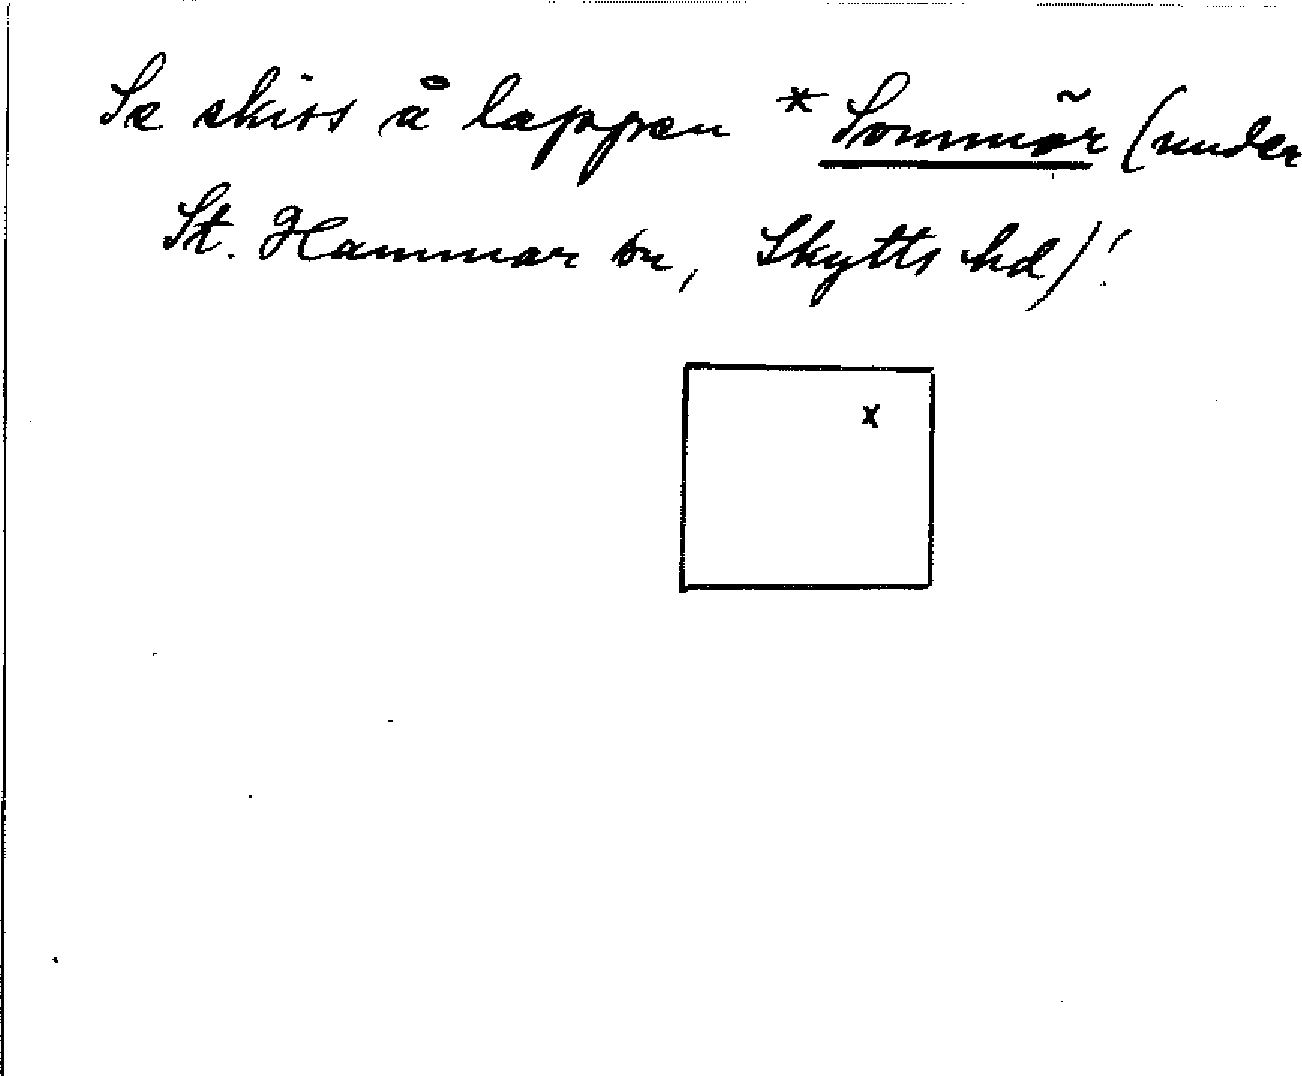 Se skiss å lappen * Sommar (under
St. Hammar sn, Skytts hd)!
x